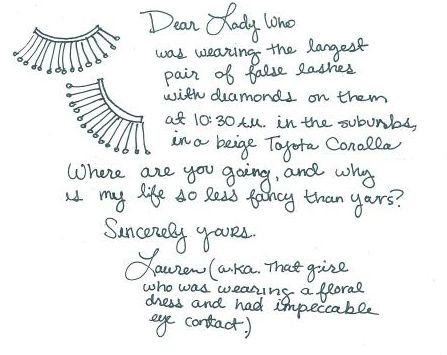 Dear Lady Who
was wearing the largest
pair of false lashes
with diamonds on them
at 10:30 a.m. in the suburbs,
in a beige Toyota Corolla
Where are you going, and why
is my life so less fancy than yours?
Sincerely yours.
Lauren (a.k.a. That girl
who was wearing a floral
dress and had impeccable
eye contact.)